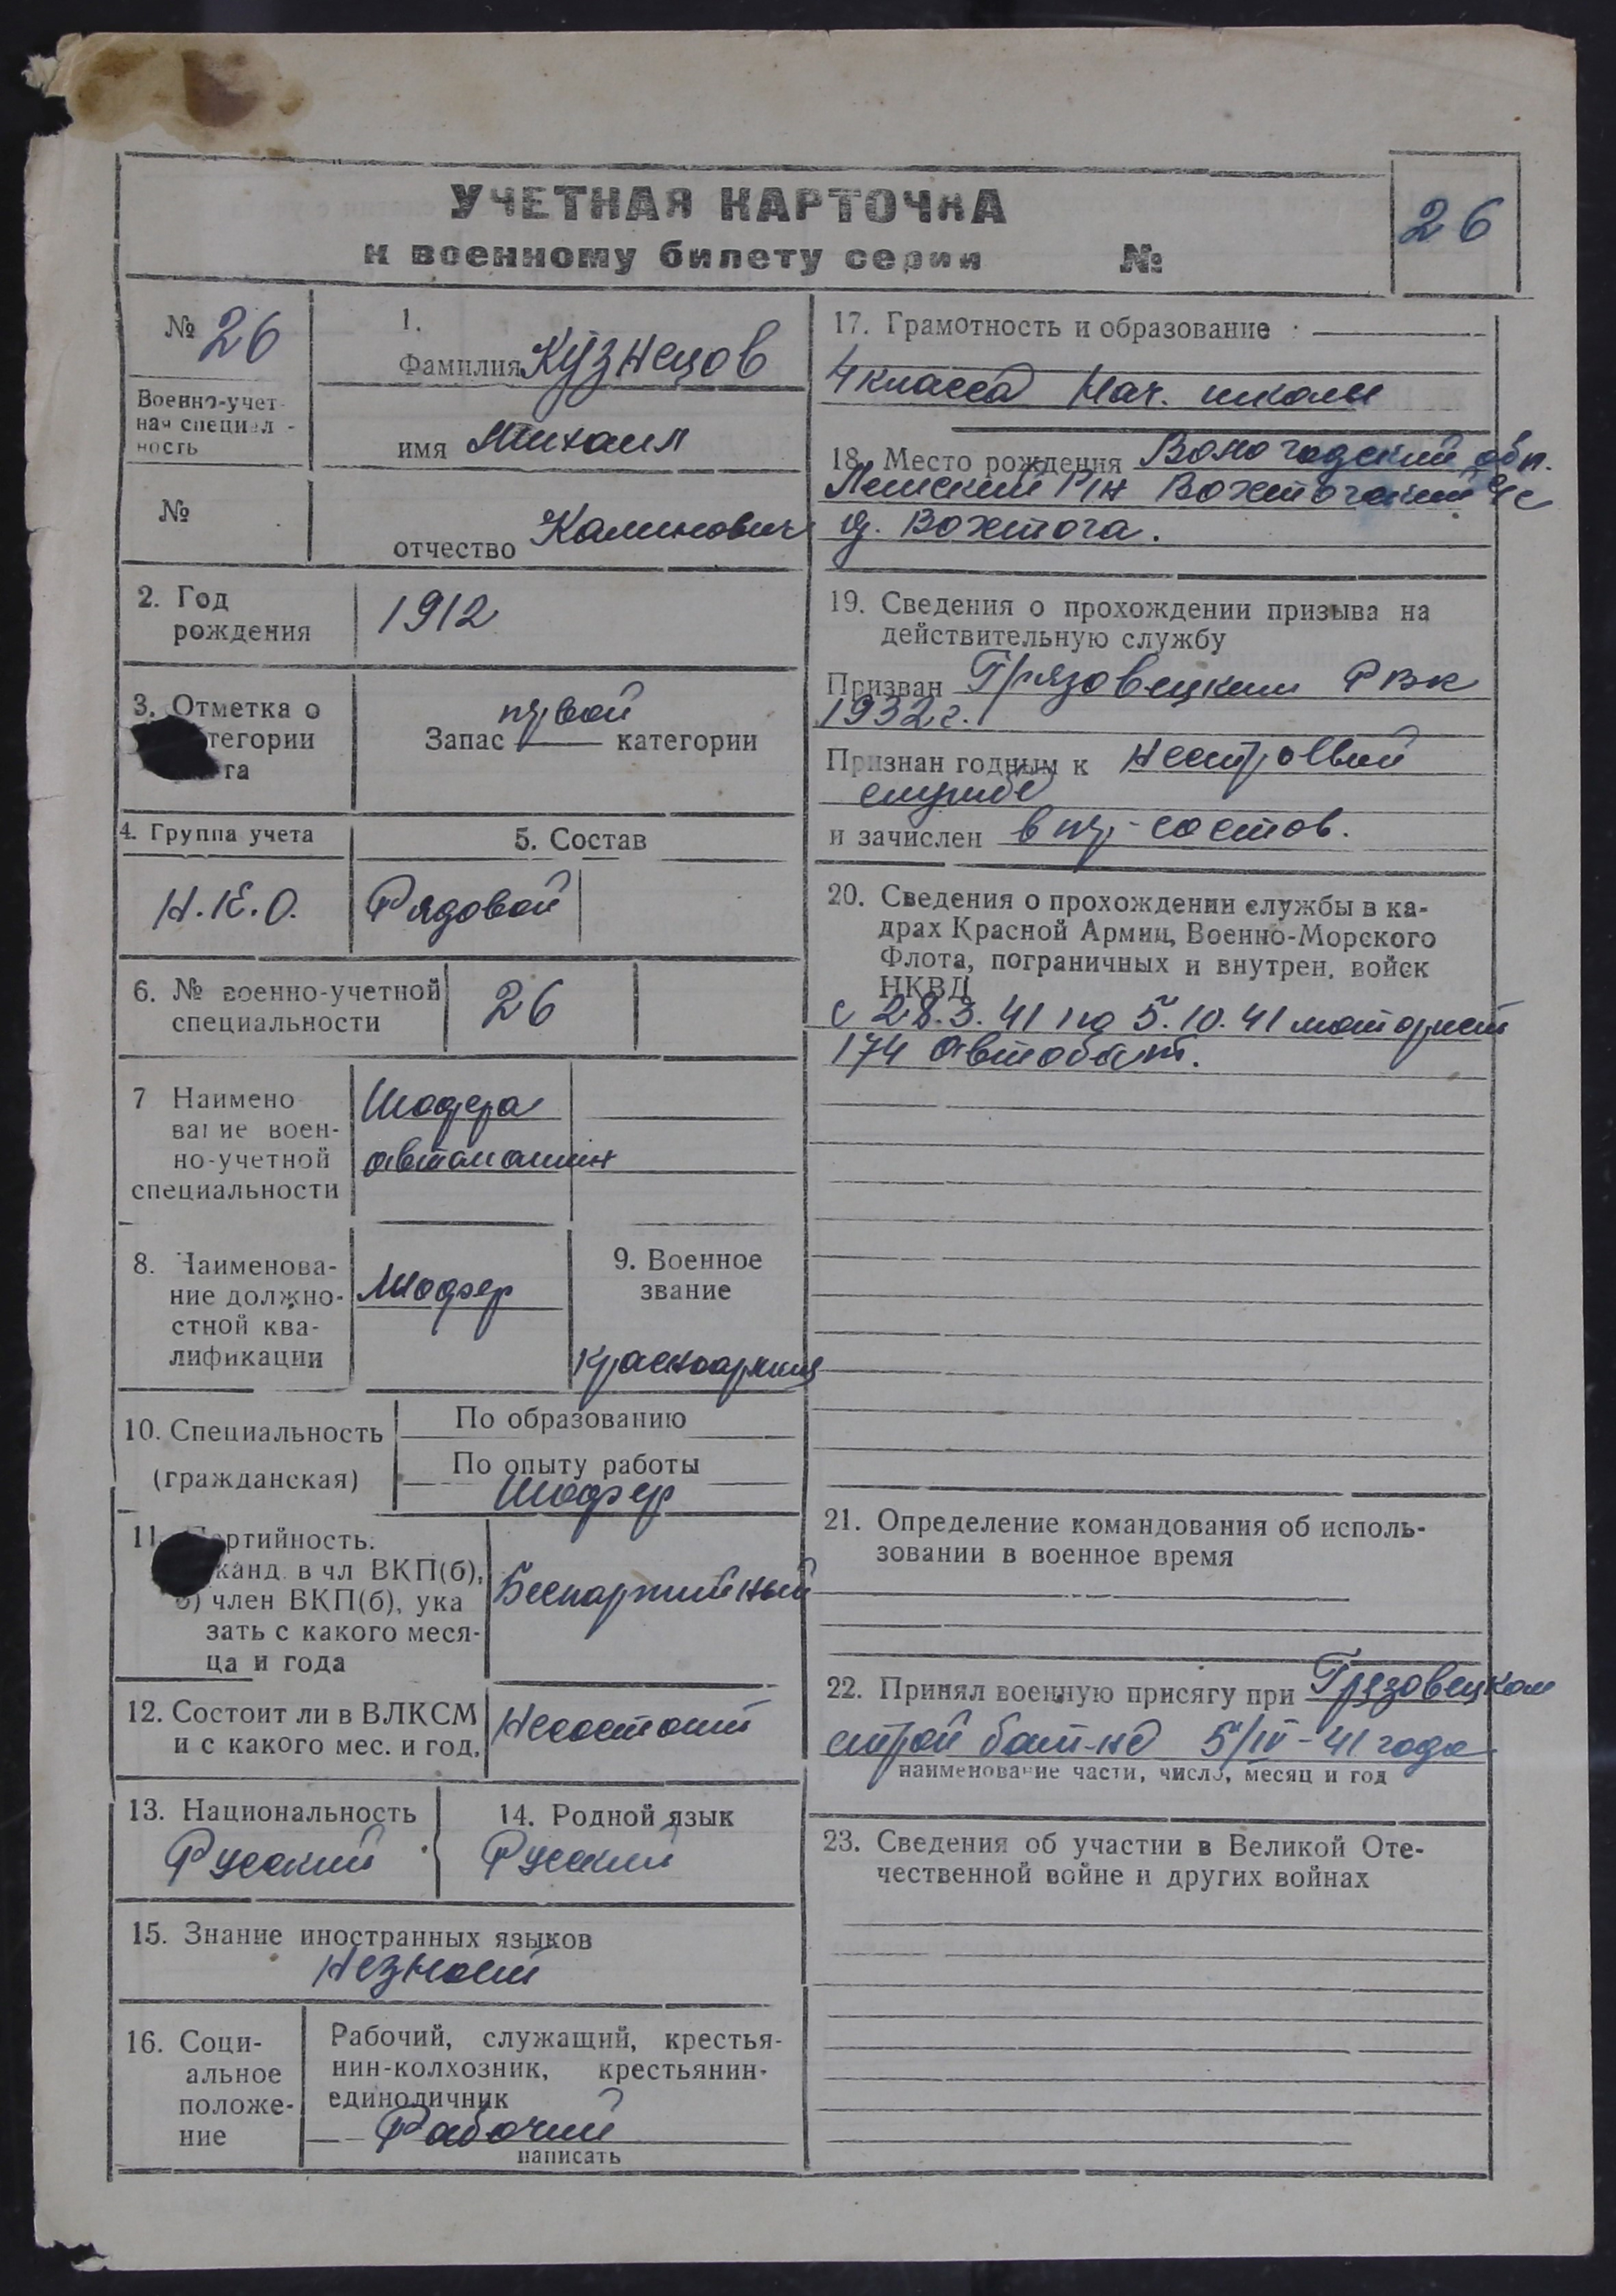 УЧЕТНАЯ КАРТОЧКА
к военному билету серии №
26
№ 26
Военно-учет-
ная специал-
ность
№
1.
Фамилия Кузнецов
имя Михаил
отчество Калинович
2. Год
рождения
1912
3. Отметка о
тегории
та
первой
Запас категории
4. Группа учета
Н.К.О.
5. Состав
Рядовой
6. № военно-учетной
специальности
26
7 Наимено
вание воен-
но-учетной
специальности
Шофера
автомашин
8. Наименова-
ние должно-
стной ква-
лификации
Шофер
9. Военное
звание
Красноармеец
10. Специальность
(гражданская)
По образованию
По опыту работы
Шофер
11. Партийность.
канд. в чл ВКП(б),
б) член ВКП(б), ука
зать с какого меся-
ца и года
Беспартийный
12. Состоит ли в ВЛКСМ
и с какого мес. и год.
Несостоит
13. Национальность
Русский
14. Родной язык
Русский
15. Знание иностранных языков
Незнает
16. Соци-
альное
положе-
ние
Рабочий, служащий, крестья-
нин-колхозник, крестьянин-
единоличник
Рабочий
написать
17. Грамотность и образование
4 класса Нач. школы
18. Место рождения Вологодский обл.
Лежский Р/н Вохтогский с/с
д. Вохтога.
19. Сведения о прохождении призыва на
действительную службу
Призван Грязовецким РВК
1932 г.
Признан годным к нестроевой
службе
и зачислен в состав.
20. Сведения о прохождении службы в ка-
драх Красной Армии, Военно-Морского
Флота, пограничных и внутрен. войск
НКВД
с 28.3.41 по 5.10.41 моторист
174 автобат.
21. Определение командования об исполь-
зовании в военное время
22. Принял военную присягу при Грязовецком
строй бат-не 5/IV-41 года
наименование части, число, месяц и год
23. Сведения об участии в Великой Оте-
чественной войне и других войнах